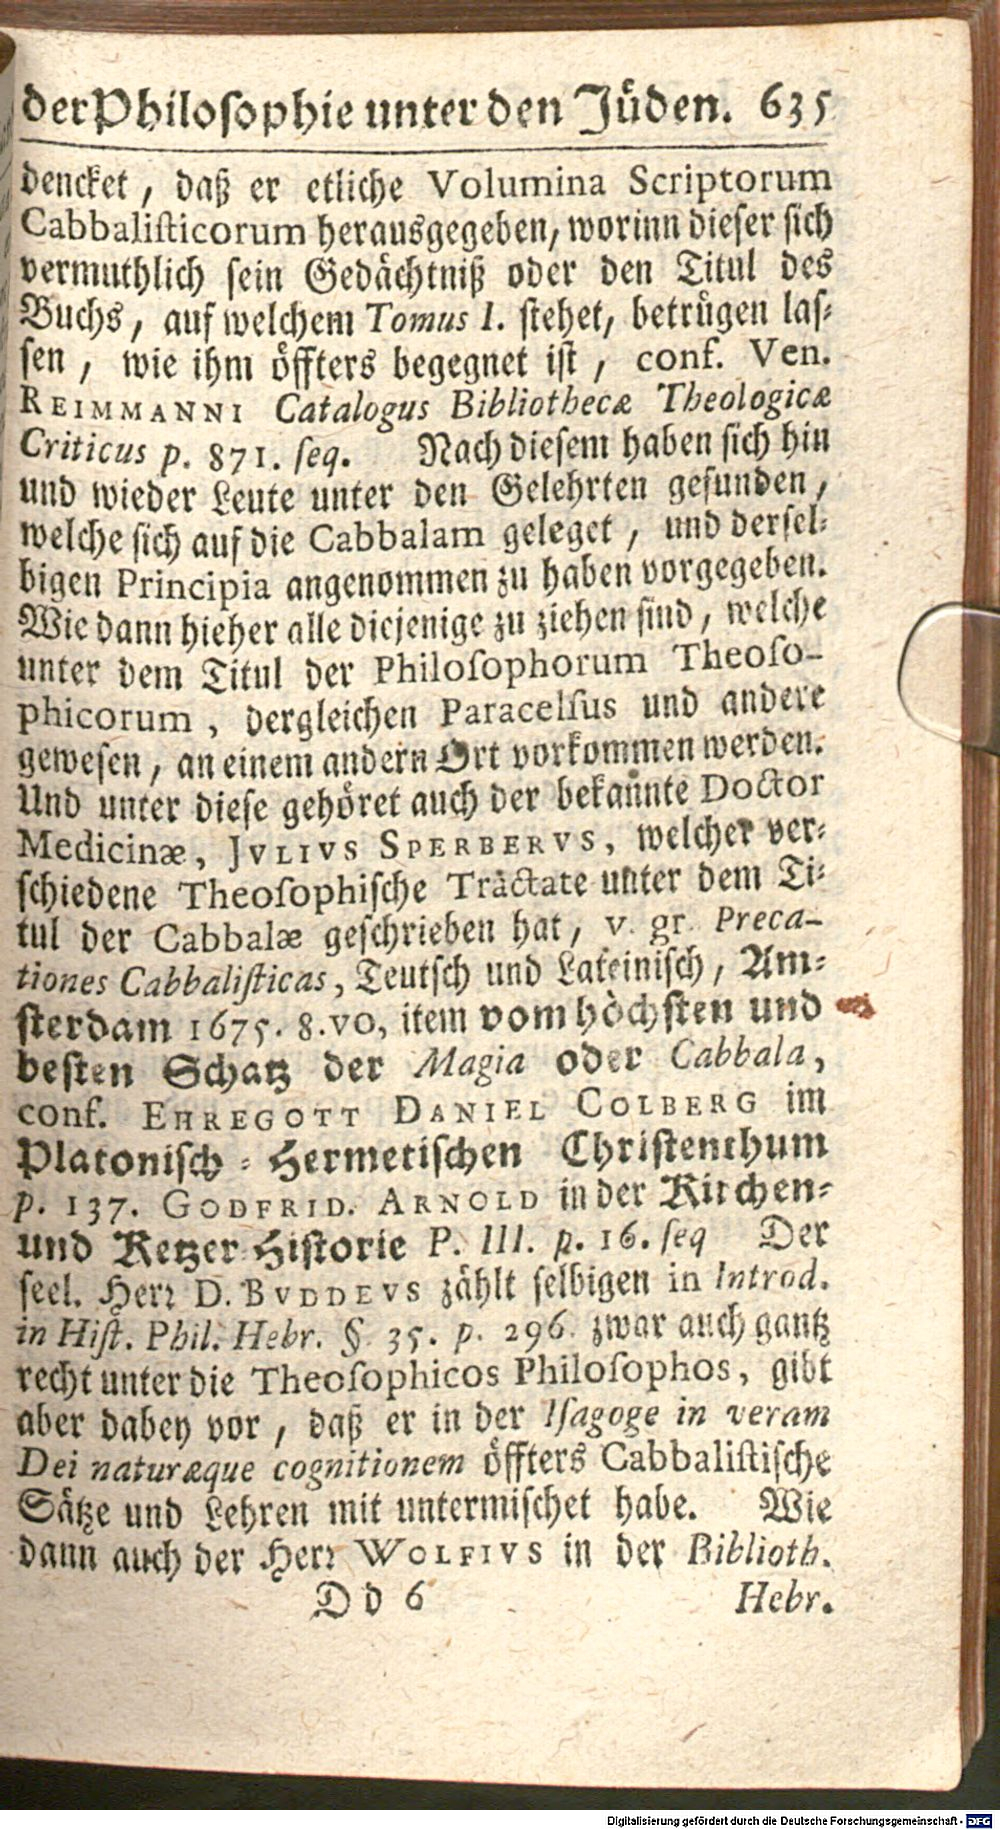 der Philosophie unter den Jüden. 635
dencket, daß er etliche Volumina Scriptorum
Cabbalisticorum herausgegeben, worinn dieser sich
vermuthlich sein Gedächtniß oder den Titul des
Buchs, auf welchem Tomus I. stehet, betrügen las-
sen, wie ihm öffters begegnet ist, conf. Ven.
REIMMANNI Catalogus Bibliothecæ Theologicæ
Criticus p. 871. seq. Nach diesem haben sich hin
und wieder Leute unter den Gelehrten gefunden,
welche sich auf die Cabbalam geleget, und dersel-
bigen Principia angenommen zu haben vorgegeben.
Wie dann hieher alle diejenige zu ziehen sind, welche
unter dem Titul der Philosophorum Theoso-
phicorum, dergleichen Paracelsus und andere
gewesen, an einem andern Ort vorkommen werden.
Und unter diese gehöret auch der bekannte Doctor
Medicinæ, JVLIVS SPERBERVS, welcher ver-
schiedene Theosophische Tractate unter dem Ti-
tul der Cabbalæ geschrieben hat, v. gr. Preca-
tiones Cabbalisticas, Teutsch und Lateinisch, Am-
sterdam 1675. 8.vo, item vom höchsten und
besten Schatz der Magia oder Cabbala,
conf. EHREGOTT DANIEL COLBERG im
Platonisch-Hermetischen Christenthum
p. 137. GODFRID. ARNOLD in der Kirchen-
und Ketzer-Historie P. III. p. 16. seq Der
seel. Herr D. BVDDEVS zählt selbigen in Introd.
in Hist. Phil. Hebr. §. 35. p. 296. zwar auch gantz
recht unter die Theosophicos Philosophos, gibt
aber dabey vor, daß er in der Isagoge in veram
Dei naturæque cognitionem öffters Cabbalistische
Sätze und Lehren mit untermischet habe. Wie
dann auch der Herr WOLFIVS in der Biblioth.
Dd 6 Hebr.
Digitalisierung gefördert durch die Deutsche Forschungsgemeinschaft - DFG